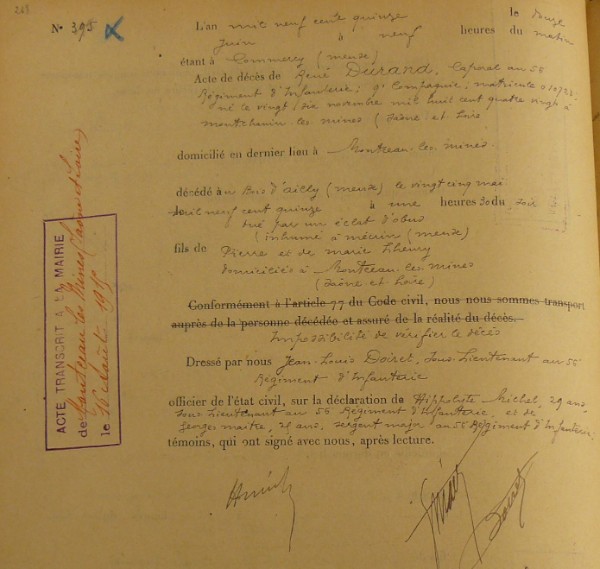 N° 395
L'an mil neuf cent quinze le douze
Juin à neuf heures du matin
étant à Commercy (meuse)
Acte de décès de René Durand, Caporal au 56
Régiment d'Infanterie; 9e Compagnie; matricule
né le vingt six novembre mil huit cent quatre vingt à
montchanin les mines (Saône et Loire
domicilié en dernier lieu à Montceau-les-mines
décédé au Bois d'ailly (meuse) le vingt cinq mai
mil neuf cent quinze à une heures 30 du soir
tué par un éclat d'obus
(inhumé à mécrin (meuse)
fils de Pierre et de marie
domiciliés à Montceau-les-mines
(Saône et Loire)
Conformément à l'article 77 du Code civil, nous nous sommes transport
auprès de la personne décédée et assuré de la réalité du décès.
Impossibilité de vérifier le décès
Dressé par nous Jean-Louis Doiret, Sous Lieutenant au 56
Régiment d'Infanterie
officier de l'état civil, sur la déclaration de Hippolyte Michel 29 ans,
Sous Lieutenant au 56 Régiment d'Infanterie, et de
Georges maitre, 29 ans, sergent major au 56 Régiment d'Infanterie
témoins, qui ont signé avec nous, après lecture.
ACTE TRANSCRIT A LA MAIRIE
de Montceau les Mines (Saône et Loire)
le 16 Août 1915